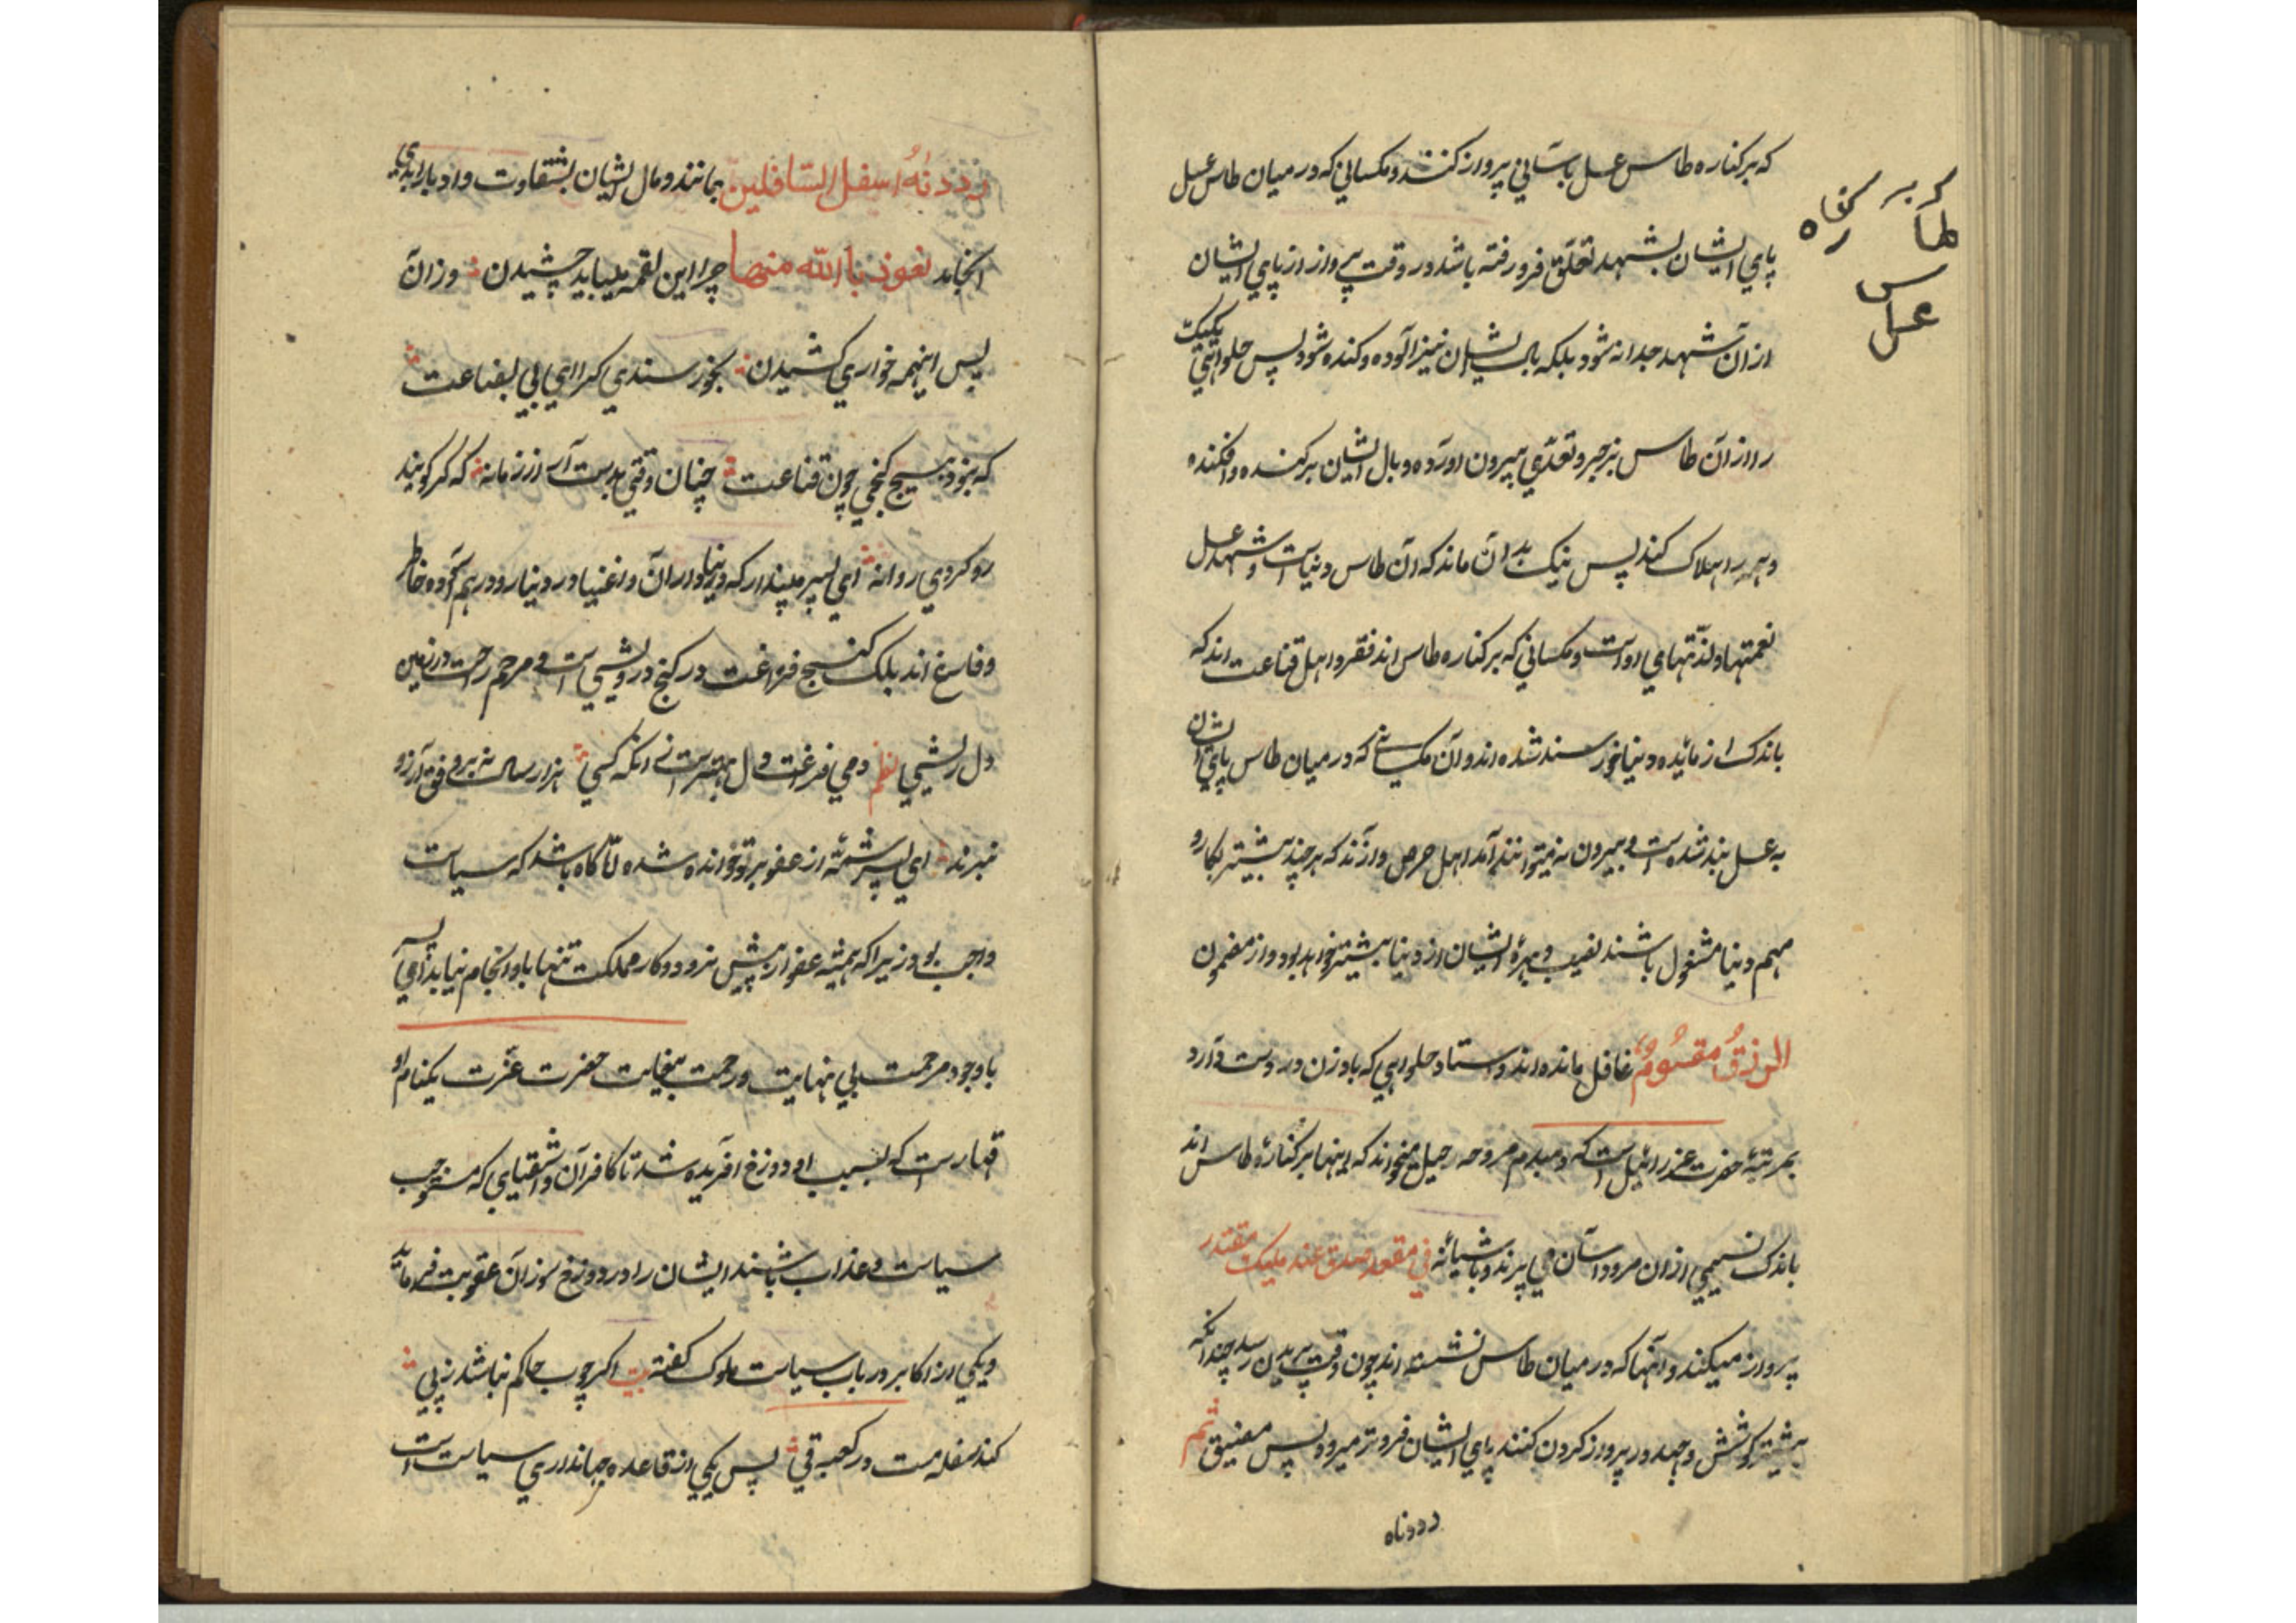 که بر کناره طاس عسل بآسانی پرواز کنند و مکسانی که در میان طاس عسل
پای ایشان بشهد تعلق فرو رفته باشد در وقت پرواز از پای ایشان
از آن شهد جدا نه شود بلکه بال ایشان نیز آلوده و کنده شود پس حلوائی یکیک
را از آن طاس بزجر و تعدی بیرون آورده و بال ایشان برکنده و افکنده
و همه را هلاک کند پس نیک بدان ماند که آن طاس دنیاست و شهد عسل
نعمتها و لذتهای اوست و مکسانی که بر کناره طاس اند فقرو اهل قناعت اند که
باندک از مائده دنیا خورسند شده اند و آن مکسانی که در میان طاس پای ایشان
به عسل بند شده است و بیرون نه میتوانند آمد اهل حرص و آزند که هر چند بیشتر بکار و
مهم دنیا مشغول باشند نصیب و بهرۀ ایشان از دنیا بیشتر خواهد بود و از مضمون
الرزق مقسوم غافل مانده اند و استاد حلوایی که بادزن در دست دارد
بمرتبۀ حضرت عزرائیل است که دمبدم مروحه رحیل میخواند که اینها بر کنارۀ طاس اند
باندک نسیمی از آن مروه آسان می پرند و باشیانۀ فی مقعد صدق عند ملیک مقتدر
پرواز میکنند و آنها که در میان طاس نشسته اند چون وقت پریدن رسد چندانکه
بیشتر کوشش و جهد در پرواز کردن کنند پای ایشان فروتر میروه پس معنیق ثم
رددناه
که بر کناره
طاس
عسل
رددنه اسفل السافلین بمانند و مال ایشان بشقاوت و ادبار ابدی
انجامد نعوذ باالله منها چرا این لقمه میباید چشیدن وز آن
پس اینهمه خواری کشیدن بخورسندی کرا ای بی بضاعت
که نبود هیچ گنجی چون قناعت چنان وقتی بدست آر از زمانه که گر گویند
رو کردی روانه ای پسر مپندار که دنیاداران و اغنیا در دینار و درهم آسوده خاطر
و فارغ اند بلک گنج فراغت در کنج درویشی است و مرهم راحت در زمین
دل ریشی نظم دمی فراغت دل بهتر است زانکه کسی هزار سال نه بر وفق آرزو
نبرند ای پسر شمۀ از عفو بر تو خوانده شده تا آکاه باشد که سیاست
واجب بود زیرا که همیشه عفو از پیش نرود و کار مملکت تنها باو انجام نیابد ای پسر
با وجود مرحمت بی نهایت و رحمت بیغایت حضرت عزت یکنام او
قهارست که بسبب او دوزخ آفریده شد تا کافران و اشقیای که مستوجب
سیاست و عذاب باشند ایشان را در دوزخ سوزان عقوبت فرماید
و یکی از اکابر در باب سیاست ملوک گفته بیت اکر چوب حاکم نباشد ز پی
کند سفله مست در کعبه قی پس یکی از قاعده جهانداری سیاست است